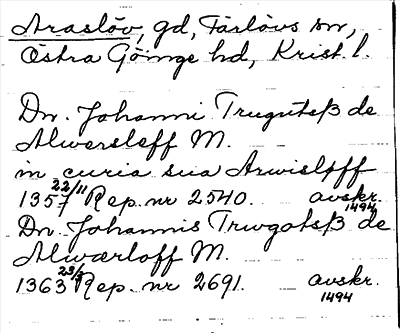 Araslöv, gd, Färlövs sn,
Östra Göinge hd, Krist. l.
Dn. Johanni Trugutsß de
Alwersleff M.
in curia sua Arwisloff
1357 22/11 Rep. nr 2540. avskr. 1494
Dn. Johannis Trwgotsß de
Alwærloff M.
1363 23/3 Rep. nr 2691. avskr.
1494